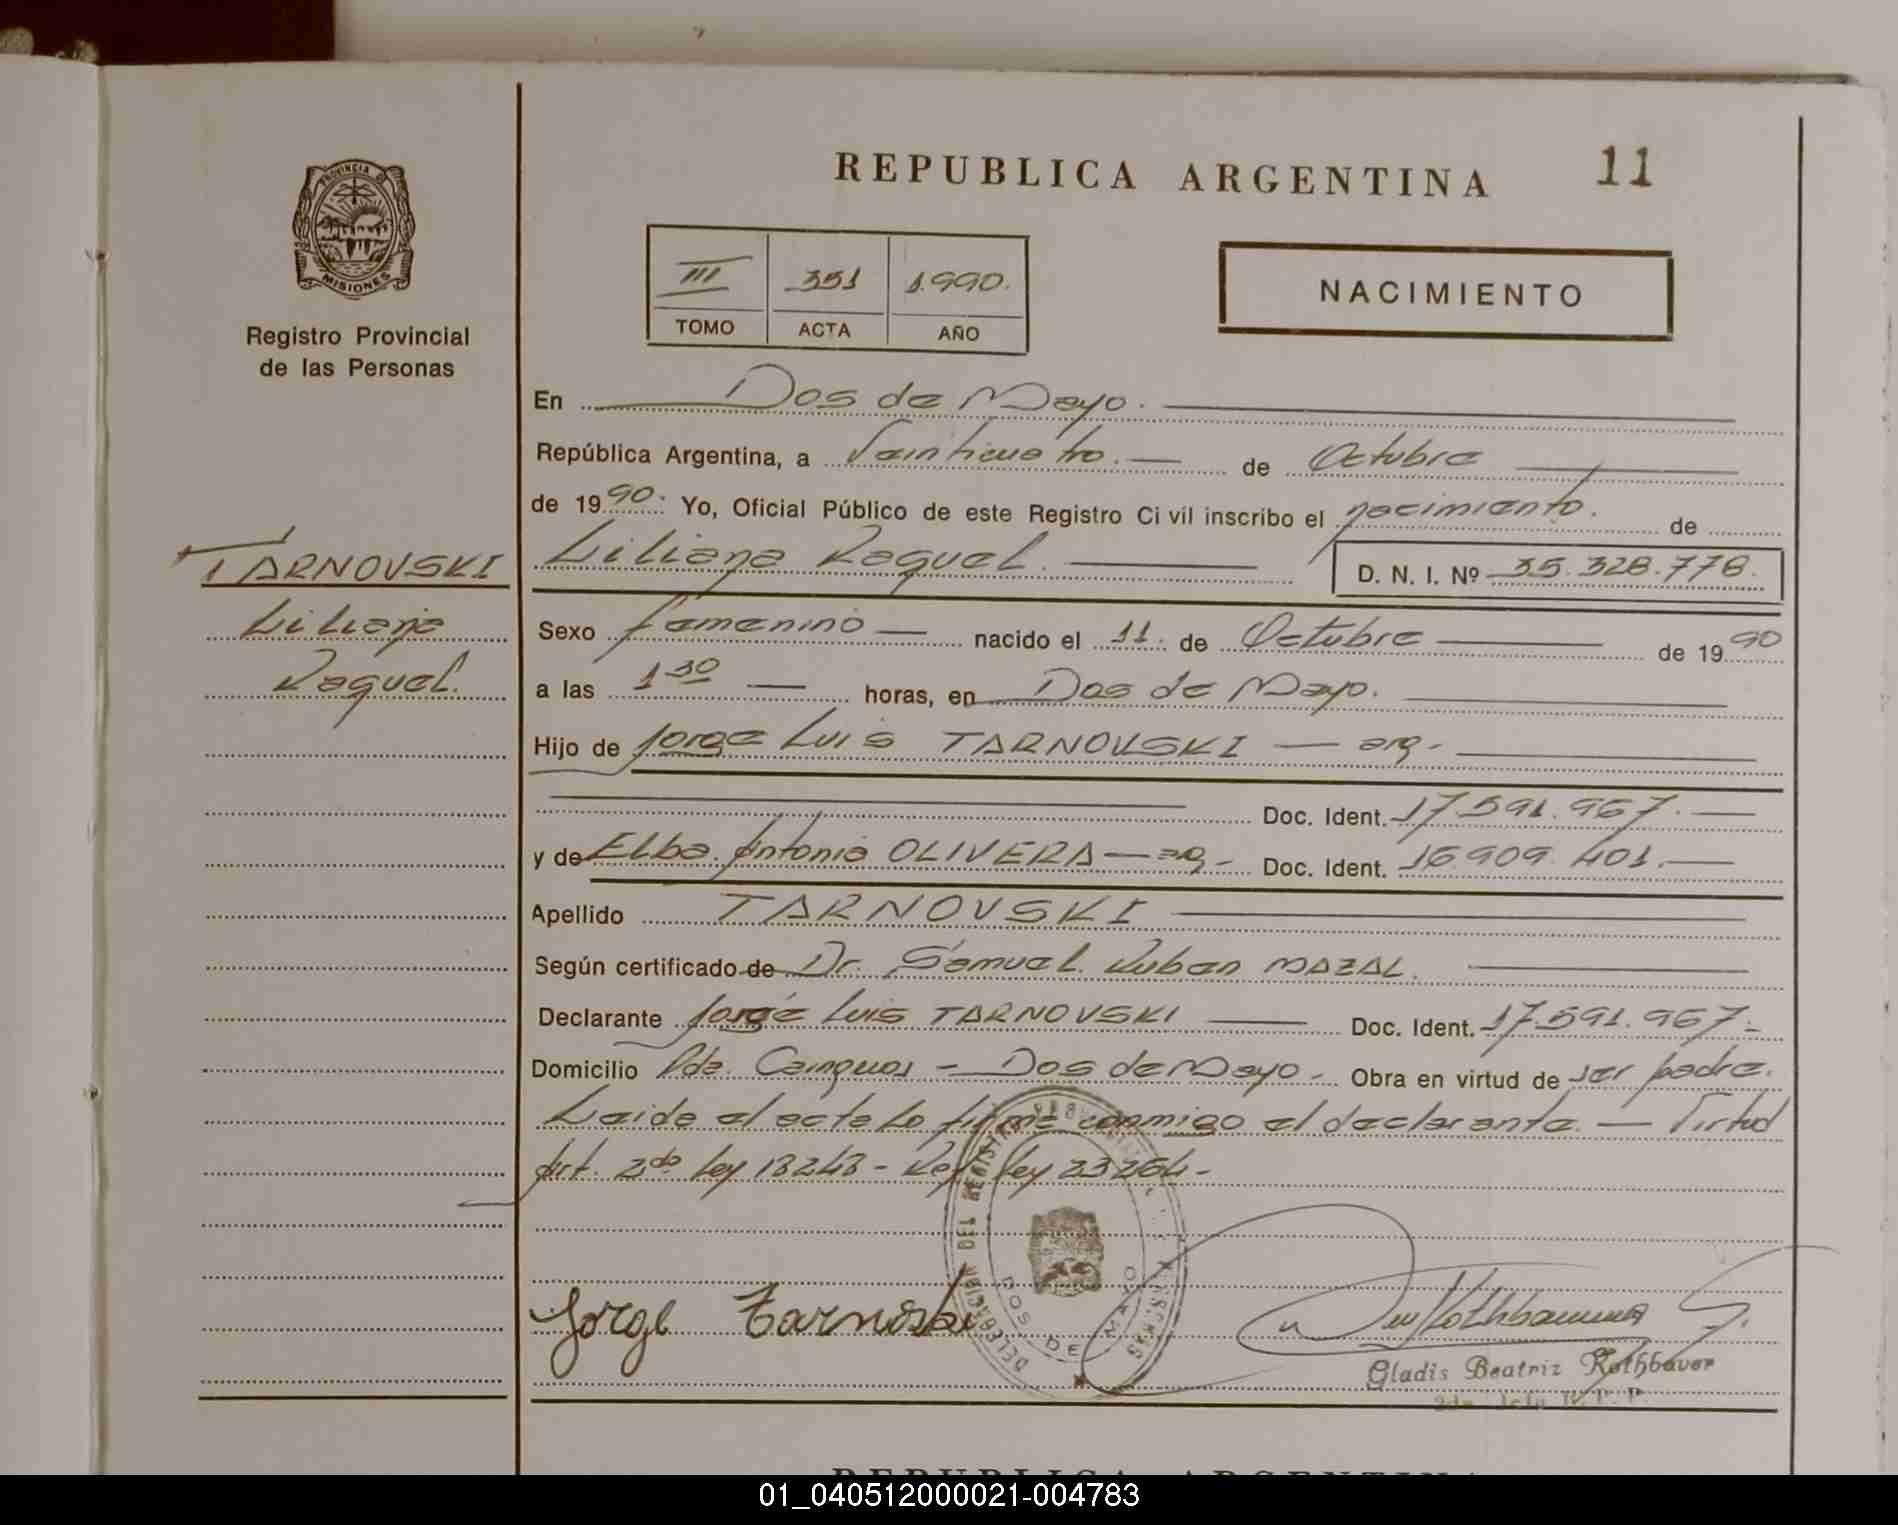 REPUBLICA ARGENTINA 11
PROVINCIA D
MISIONES
Registro Provincial
de las Personas
III 351 1.990.
TOMO ACTA AÑO
NACIMIENTO
En Dos de Mayo.
República Argentina, a Veinticuatro. de Octubre
de 1990. Yo, Oficial Público de este Registro Ci vil inscribo el nacimiento. de
TARNOVSKI
Liliana
Raquel.
Liliana Raquel. D. N. I. Nº 35.328.778.
Sexo femenino nacido el 11. de Octubre de 1990
a las 1 30 horas, en Dos de Mayo.
Hijo de Jorge Luis TARNOVSKI — arg-
Doc. Ident. 17.591.967.
y de Elba Antonia OLIVERA — arg- Doc. Ident. 16909.401.
Apellido TARNOVSKI
Según certificado de Dr. Samuel Ruben MAZAL.
Declarante Jorge Luis TARNOVSKI Doc. Ident. 17.591.967.
Domicilio Pda. Cainguas - Dos de Mayo - Obra en virtud de ser padre.
Leida el acta la firma conmigo el declarante. — Virtud
Art. 2do Ley 18248 - Ley 23264-
DELEGACION DEL REGISTRO
DOS DE MAYO
Jorge Tarnoski
Gladis Beatriz Rothbauer
REPUBLICA ARGENTINA
01_040512000021-004783